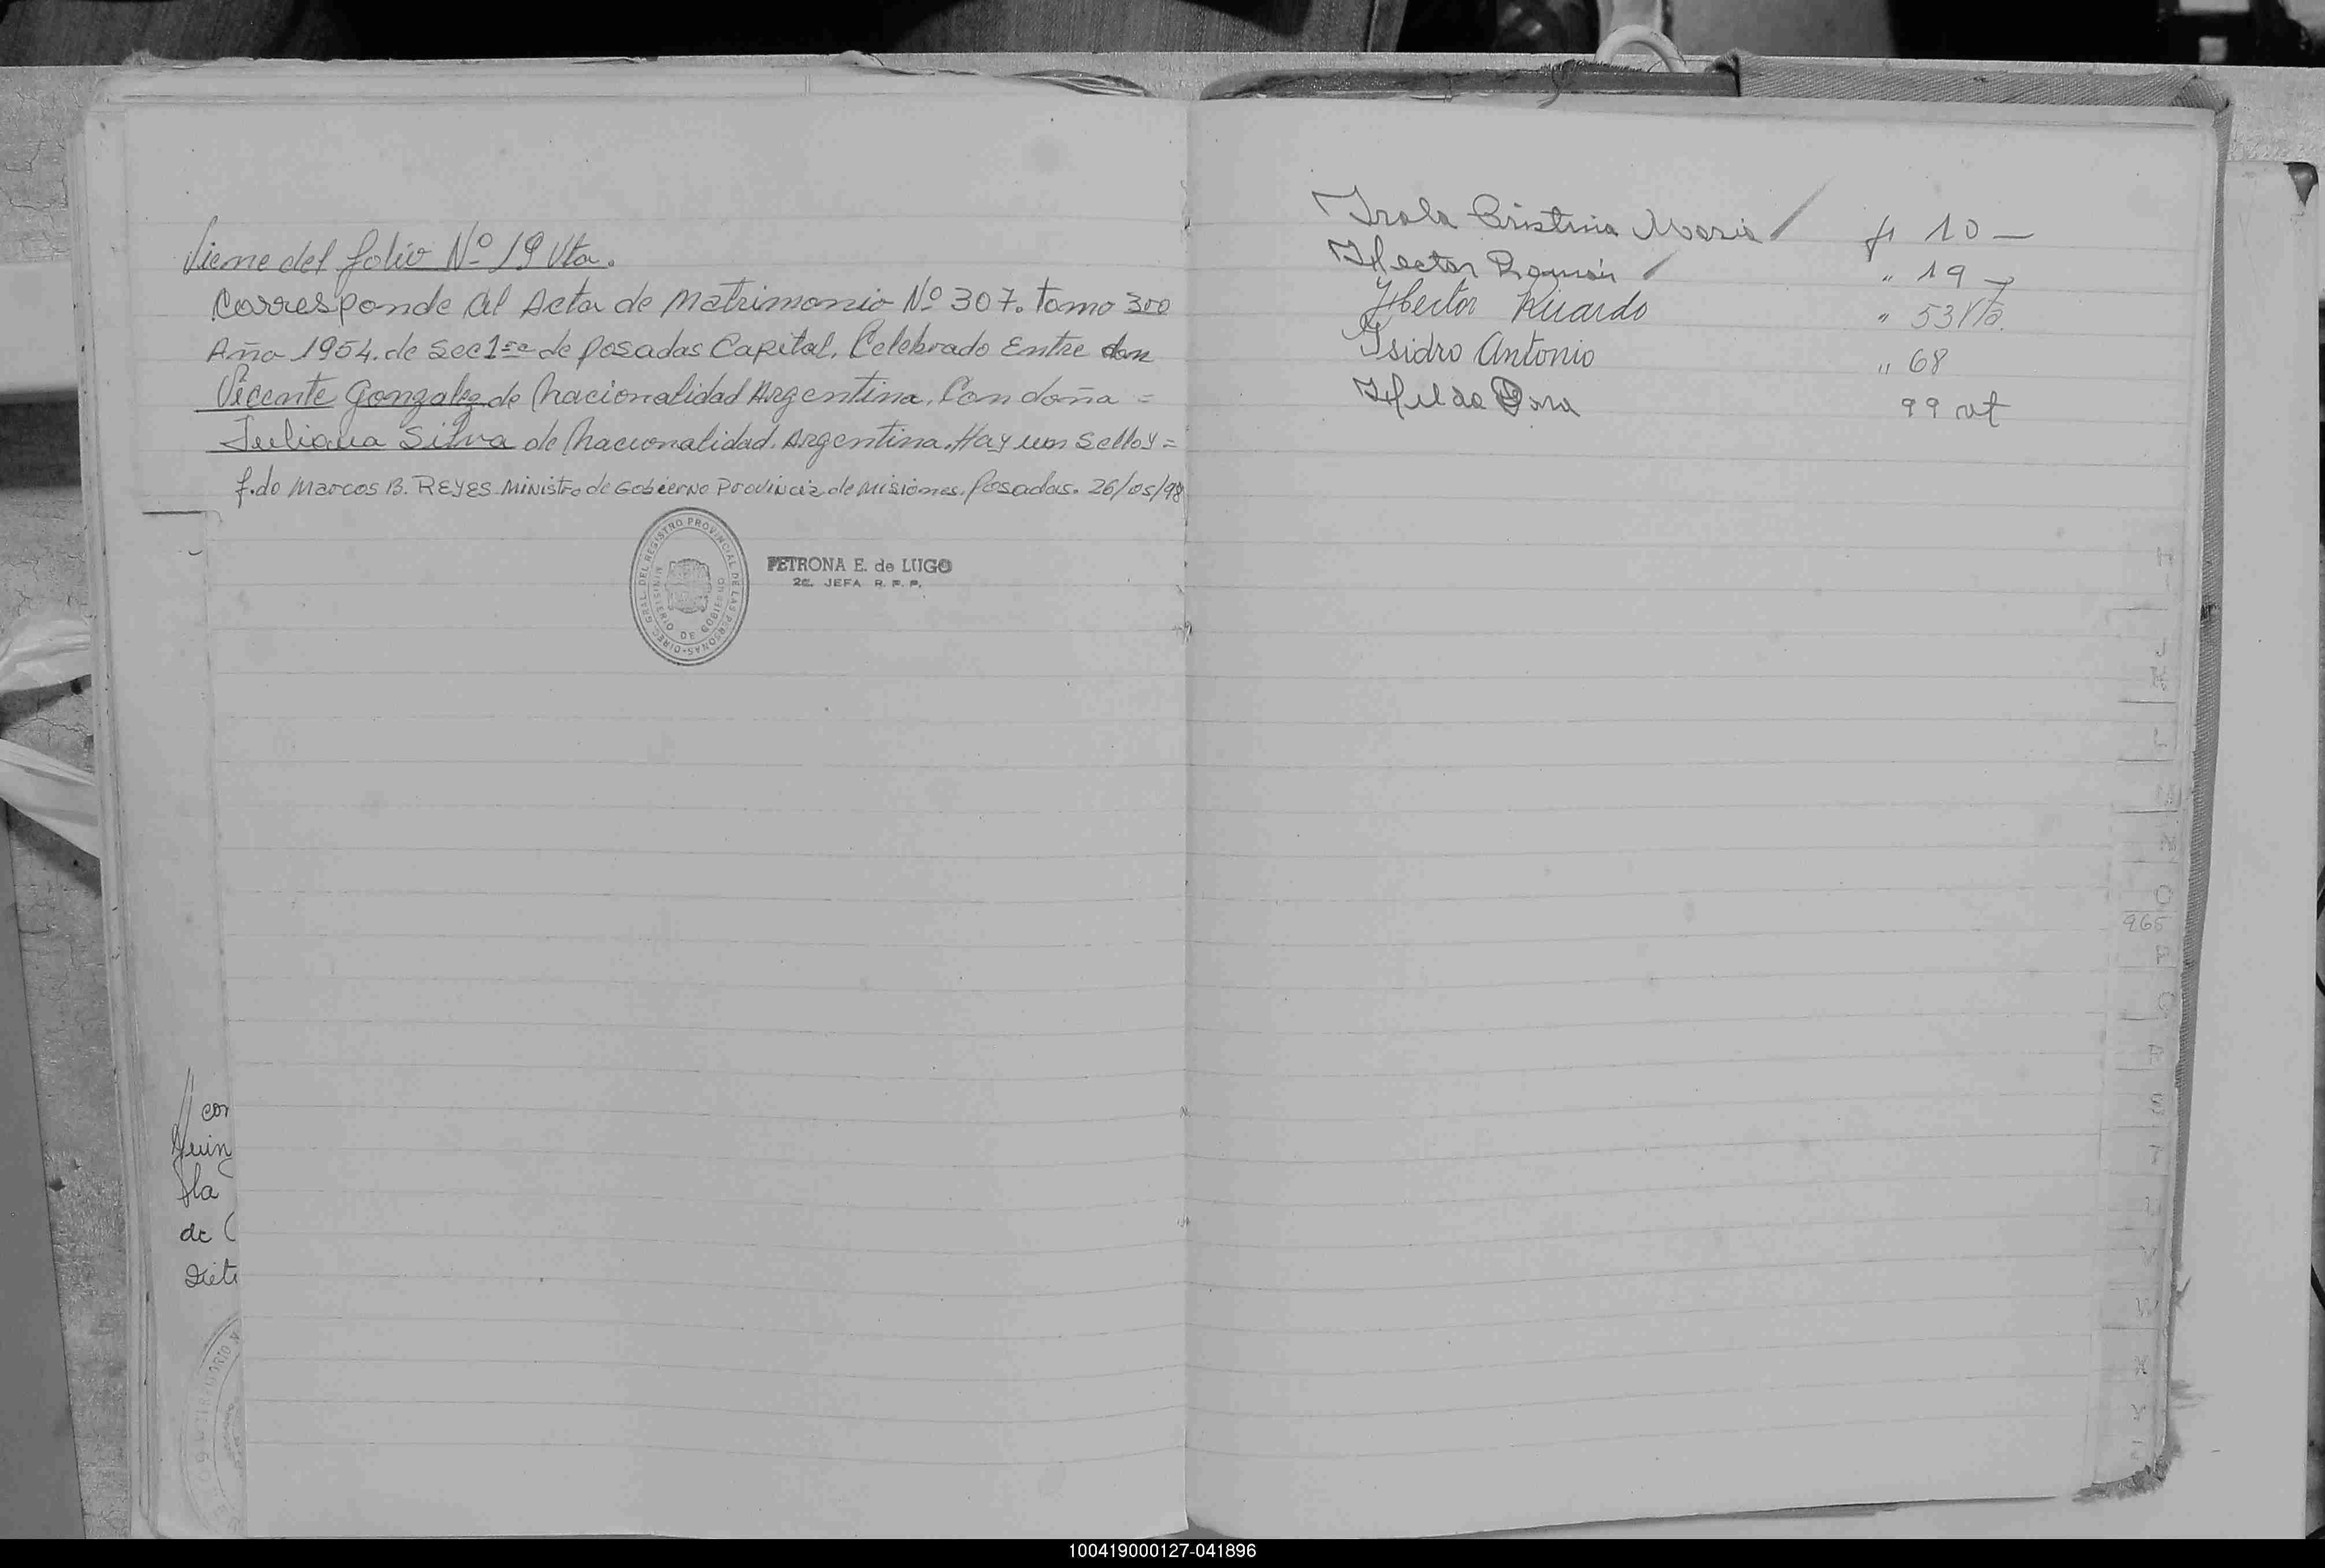 Viene del folio Nº 19 Vta.
Corresponde al Acta de Matrimonio Nº 307. tomo 300
Año 1954. de Sec 1ra de Posadas Capital. Celebrado Entre don
Vicente Gonzalez de nacionalidad Argentina. Con doña =
Juliana Silva de nacionalidad. Argentina. Hay un Sello y =
f.do Marcos B. REYES Ministro de Gobierno Provincia de Misiones. Posadas. 26/05/98
DIREC. GRAL. DEL REGISTRO PROVINCIAL DE LAS PERSONAS
MINISTERIO DE GOBIERNO
PETRONA E. de LUGO
2a. JEFA R. P. P.
// con
Quin
la
de (
Siete
Irala Cristina Maria / f 10 —
I Hector Ramón / " 19 —
I Hector Ricardo " 53 Vta.
I Isidro Antonio " 68
I Hilda Dora 99 vt
H
J
K
L
M
N
O
965
P
Q
R
S
T
U
V
W
X
Y
Z
100419000127-041896